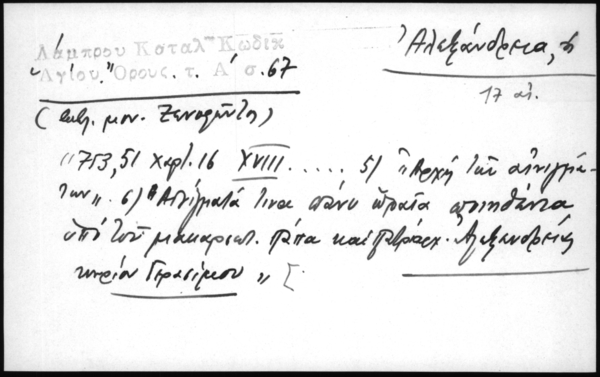 Λάμπρου Καταλ. Κωδίκ
"Αγίου "Ορους. τ. Α΄ σ. 67
Ἀλεξάνδρεια, ἡ
17 αἰ.
(βιβ. μον. Ξενοφῶντος)
"753,51 Χαρτ. 16 XVIII ..... 5) "Ἀρχὴ τῶν αἰνιγμά-
των". 6) "Αἰνίγματά τινα πάνυ ὡραῖα ποιηθέντα
ὑπὸ τοῦ μακαριωτ. πάπα καὶ πατριάρχ. Ἀλεξανδρείας
κυρίου Γερασίμου" [